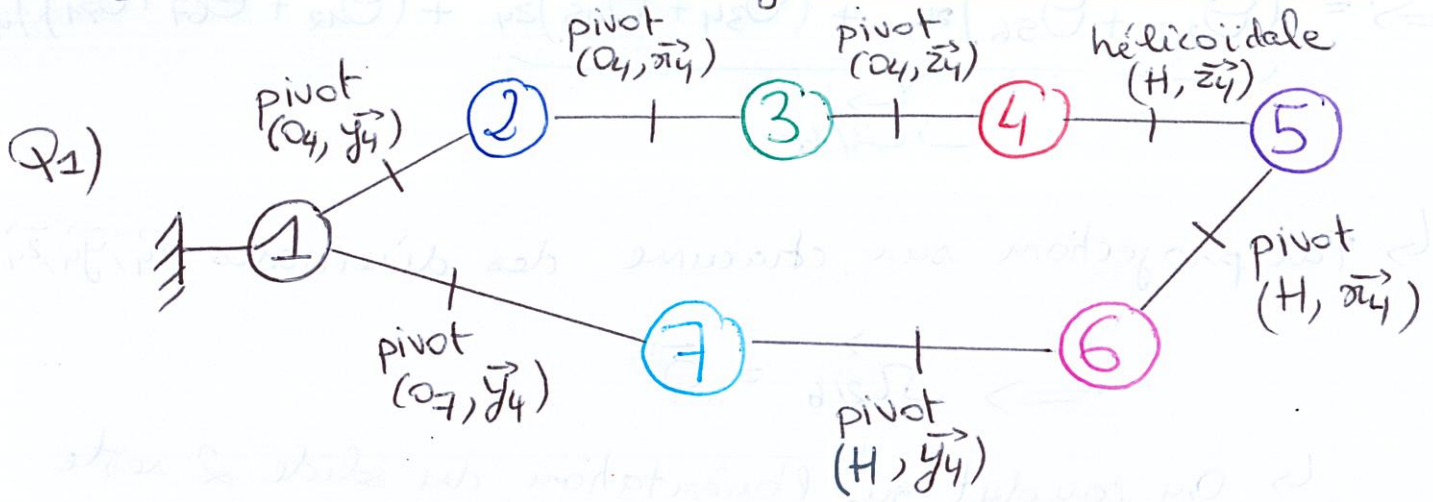 Q1)
pivot
(O4, y4→)
2
pivot
(O4, x4→)
3
pivot
(O4, z4→)
4
hélicoïdale
(H, z4→)
5
1
pivot
(O7, y4→)
7
pivot
(H, y4→)
6
pivot
(H, x4→)